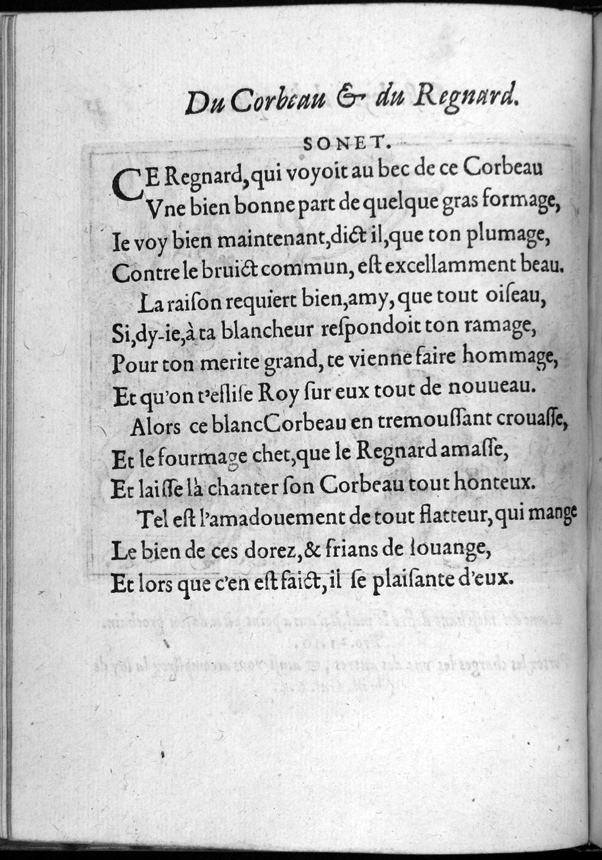 Du Corbeau & du Regnard.
SONET.
CE Regnard, qui voyoit au bec de ce Corbeau
Vne bien bonne part de quelque gras formage,
Ie voy bien maintenant, dict il, que ton plumage,
Contre le bruict commun, eſt excellamment beau.
La raiſon requiert bien, amy, que tout oiſeau,
Si, dy-ie, à ta blancheur reſpondoit ton ramage,
Pour ton merite grand, te vienne faire hommage,
Et qu'on t'eſliſe Roy ſur eux tout de nouueau.
Alors ce blanc Corbeau en tremouſſant crouaſſe,
Et le fourmage chet, que le Regnard amaſſe,
Et laiſſe là chanter ſon Corbeau tout honteux.
Tel eſt l'amadouement de tout flatteur, qui mange
Le bien de ces dorez, & frians de louange,
Et lors que c'en eſt faict, il ſe plaiſante d'eux.